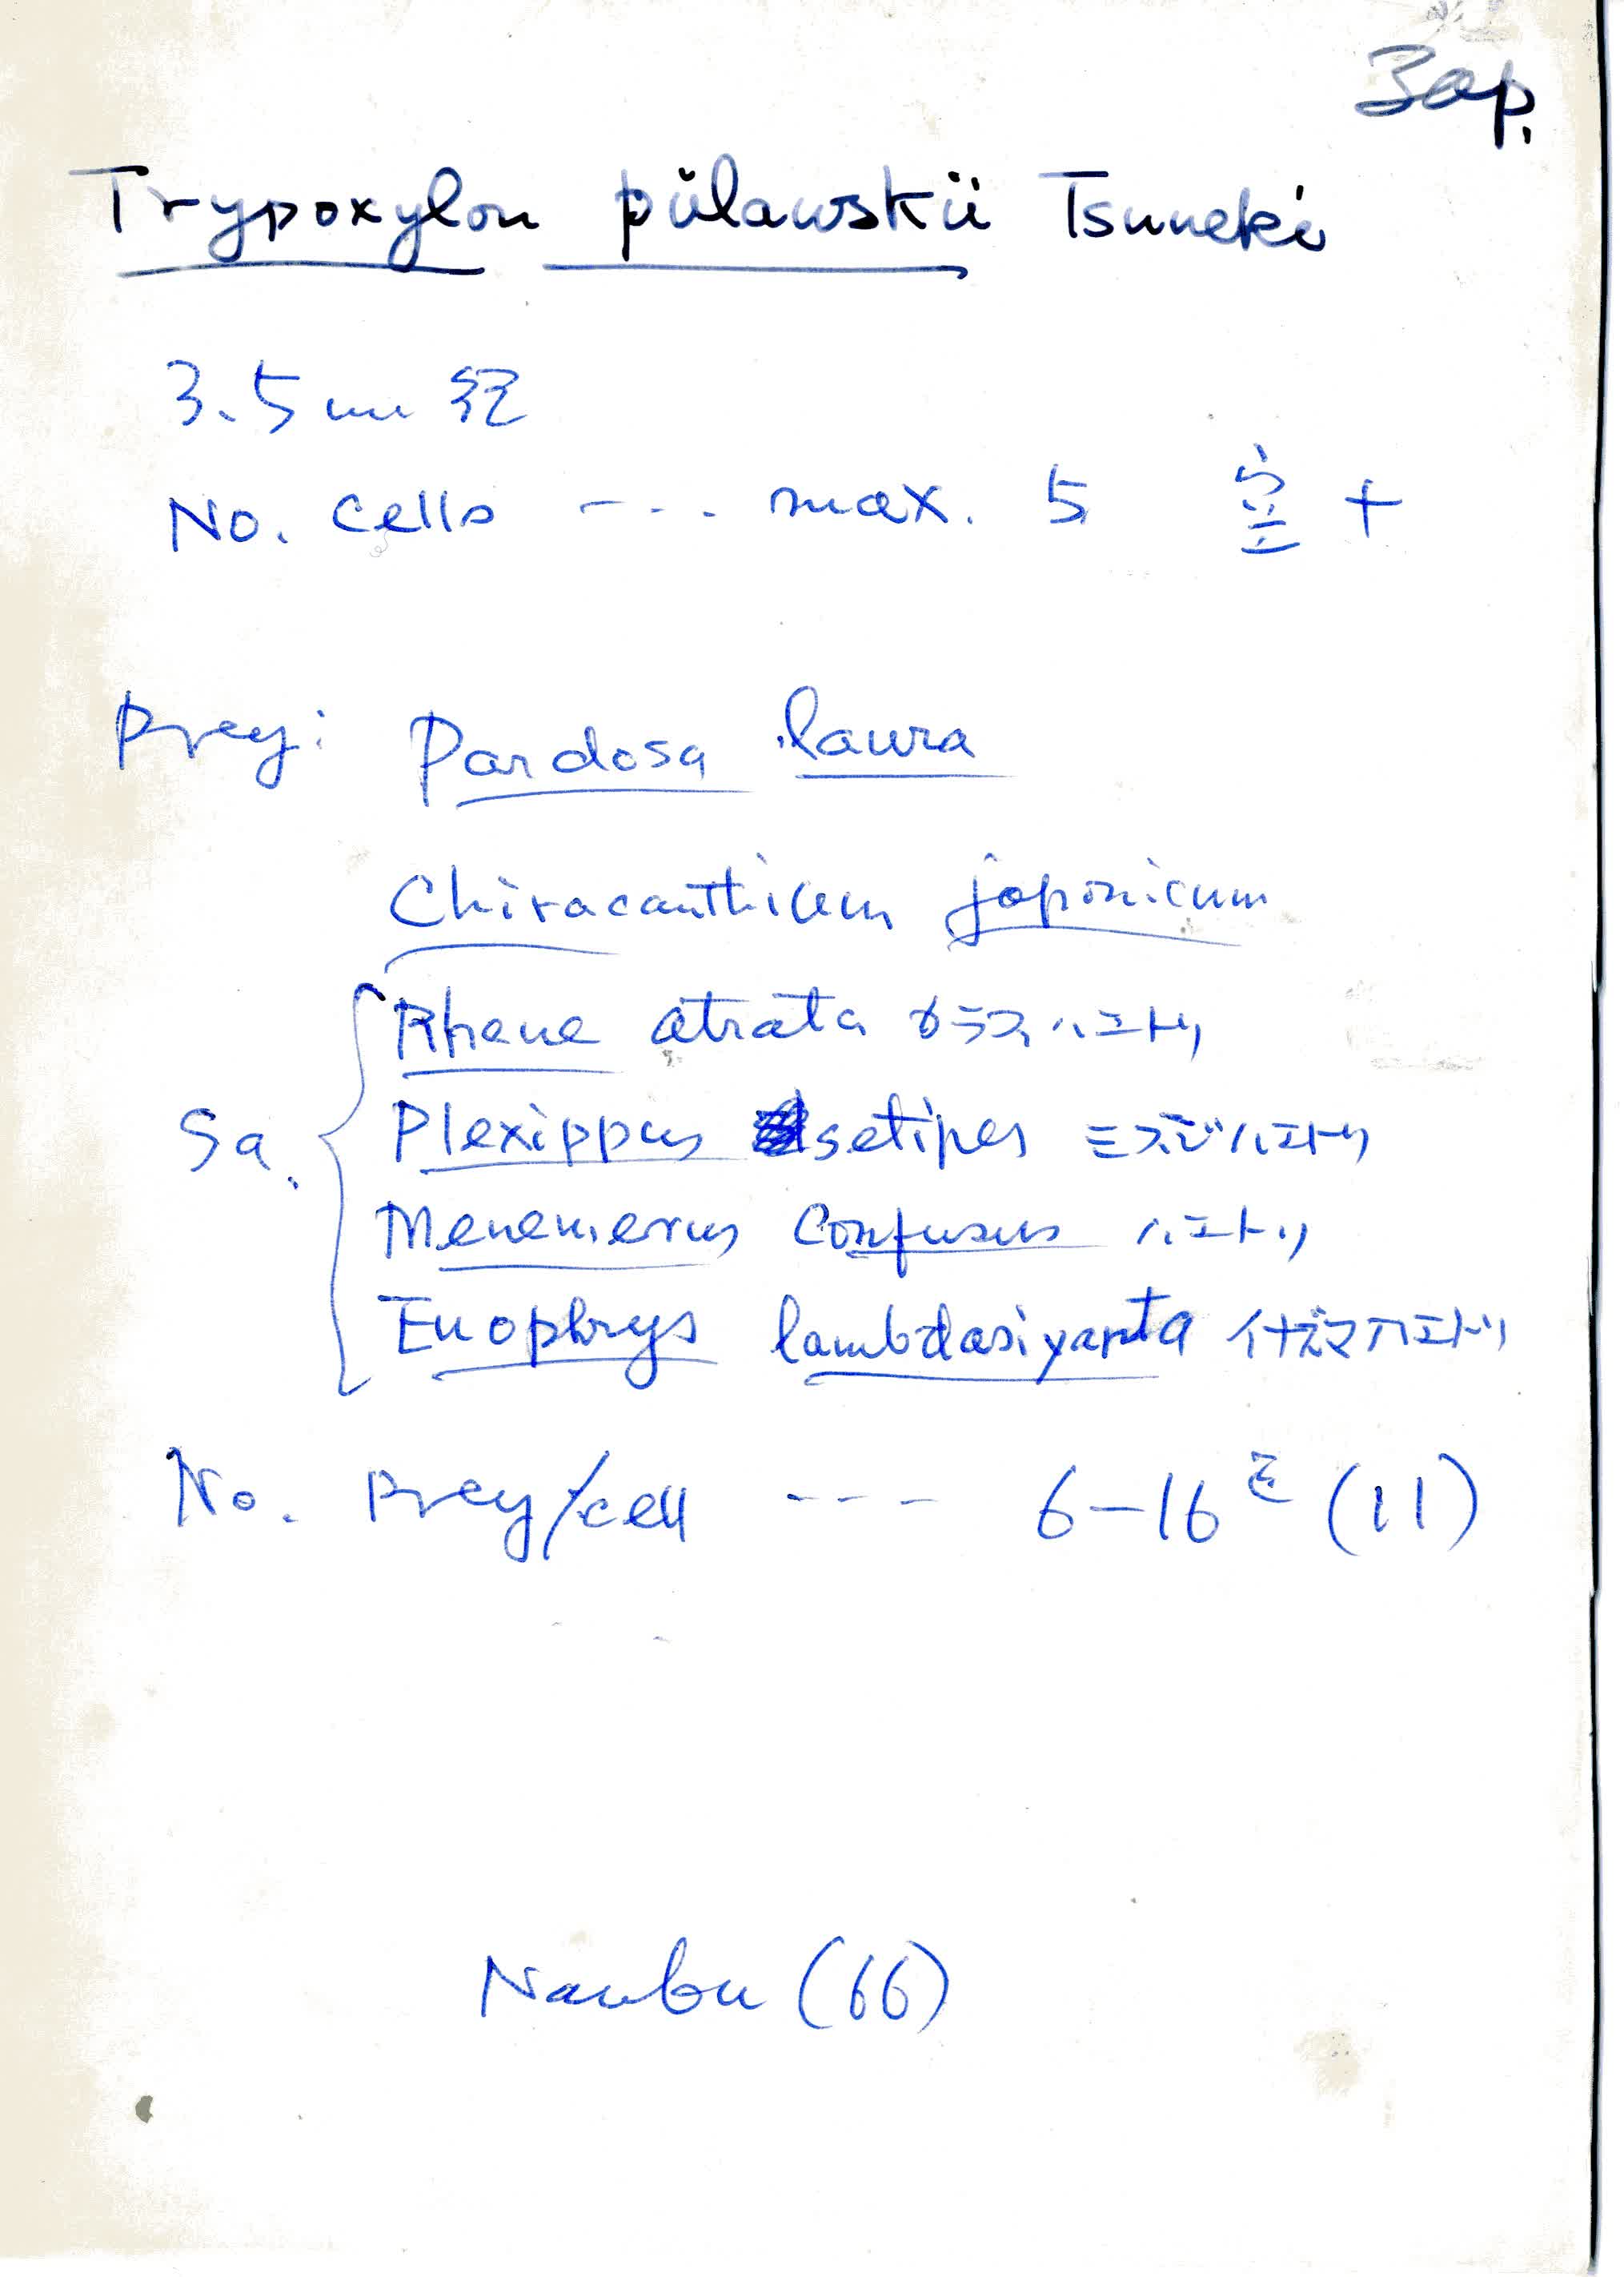 Jap.
Trypoxylon pulawskii Tsuneki
3.5mm 径
No. cells --- max. 5 空 +
Prey: Pardosa laura
Chiracanthium japonicum
Rhene atrata カラスハエトリ
Sa. Plexippus setipes ミスジハエトリ
Menemerus confusus ハエトリ
Euophrys lambdasiyanta イナズマハエトリ
No. Prey/cell --- 6-16 (11)
Nambu (66)